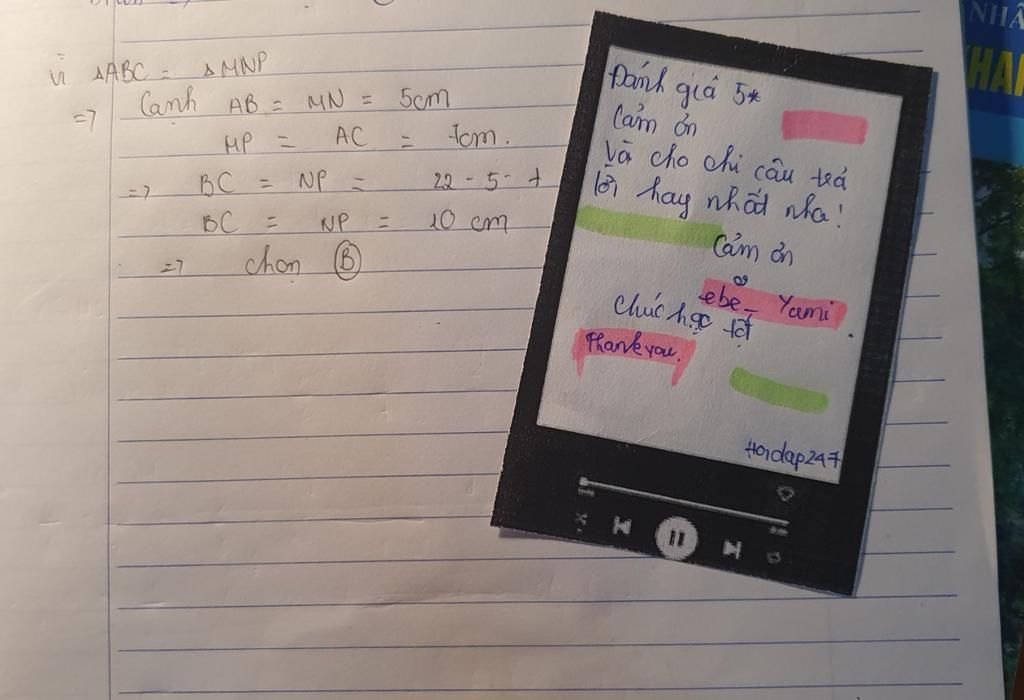 Vì △ABC = △MNP
=> Cạnh AB = MN = 5cm
MP = AC = 7cm.
=> BC = NP = 22 - 5 - 7
BC = NP = 10 cm
=> chọn B
Đánh giá 5*
Cảm ơn
Và cho chi câu trả
lời hay nhất nha!
Cảm ơn
ebe_ Yumi
Chúc học tốt.
Thank you.
Hoidap247
NHÂ